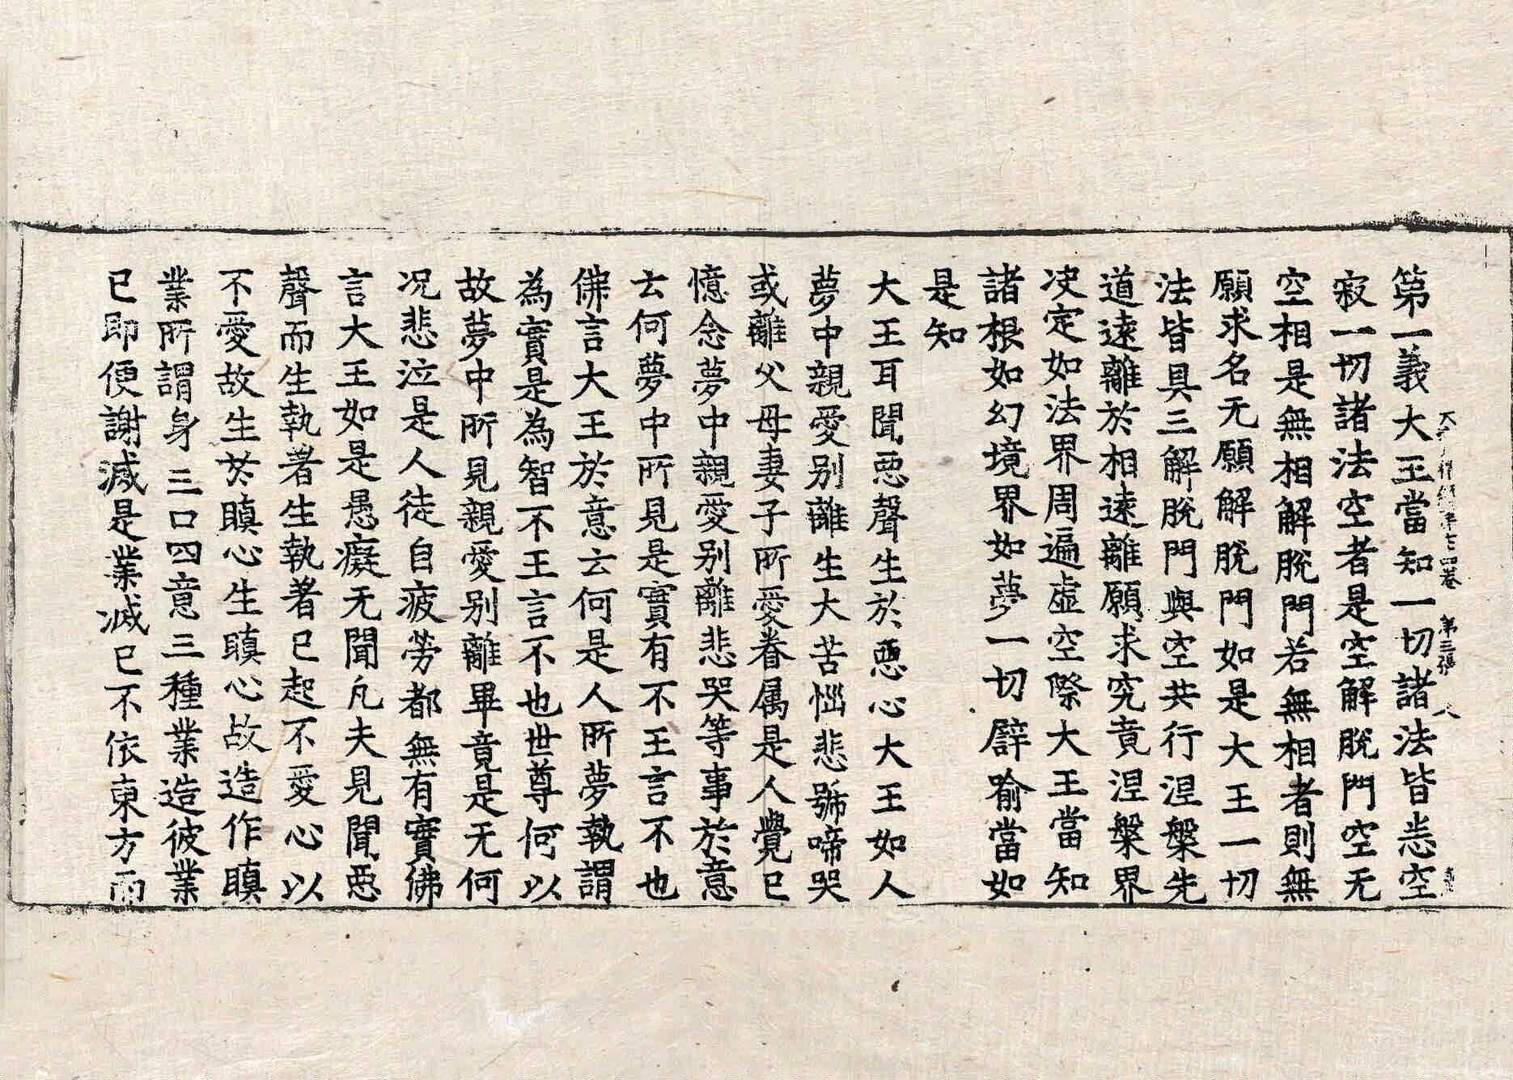 第七四卷 第三張
第一義大王當知一切諸法皆悉空
寂一切諸法空者是空解脫門空无
空相是無相解脫門若無相者則無
願求名无願解脫門如是大王一切
法皆具三解脫門與空共行涅槃先
道遠離於相遠離願求究竟涅槃界
决定如法界周遍虛空際大王當知
諸根如幻境界如夢一切譬喻當如
是知
大王耳聞惡聲生於惡心大王如人
夢中親愛别離生大苦惱悲號啼哭
或離父母妻子所愛眷属是人覺已
憶念夢中親愛别離悲哭等事於意
云何夢中所見是實有不王言不也
佛言大王於意云何是人所夢執謂
為實是為智不王言不也世尊何以
故夢中所見親愛别離畢竟是无何
况悲泣是人徒自疲勞都無有實佛
言大王如是愚癡无聞凡夫見聞惡
聲而生執著生執著已起不愛心以
不愛故生於瞋心生瞋心故造作瞋
業所謂身三口四意三種業造彼業
已即便謝滅是業滅已不依東方而